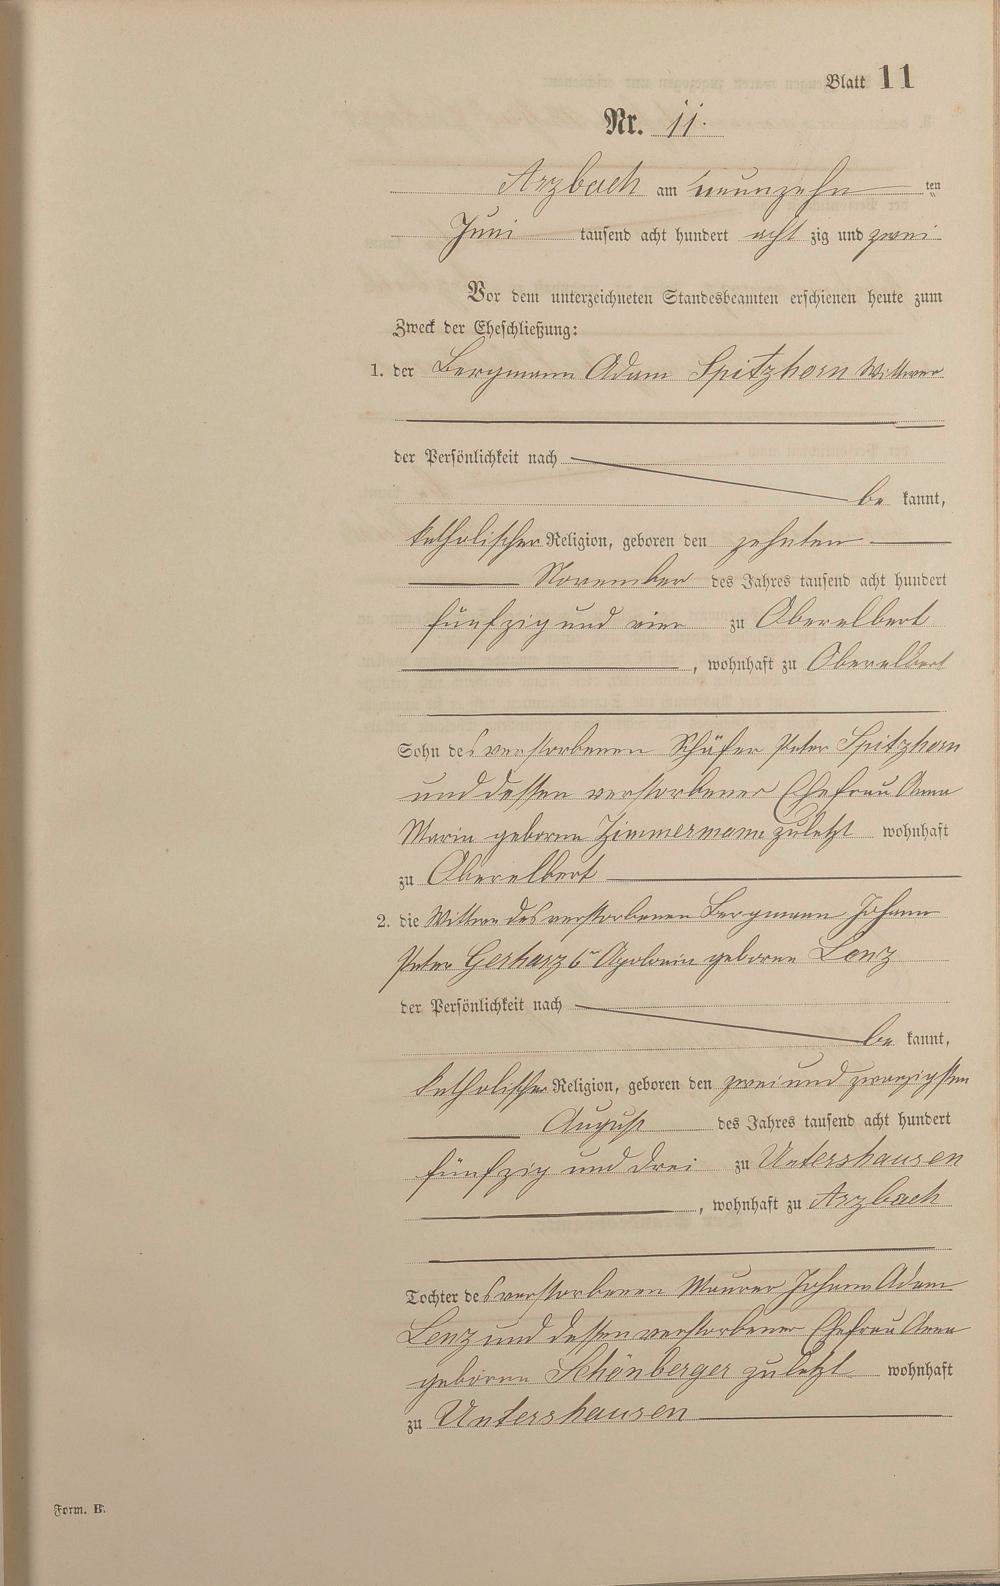 Blatt 11
Nr. 11.
Arzbach am neunzehn ten
Juni tausend acht hundert acht zig und zwei
Vor dem unterzeichneten Standesbeamten erschienen heute zum
Zweck der Eheschließung:
1. der Bergmann Adam Spitzhorn Wittwer
der Persönlichkeit nach
be kannt,
katholischer Religion, geboren den zehnten
November des Jahres tausend acht hundert
fünfzig und vier zu Oberelbert
, wohnhaft zu Oberelbert
Sohn des verstorbenen Schäfer Peter Spitzhorn
und dessen verstorbener Ehefrau Anna
Maria geborne Zimmermann zuletzt wohnhaft
zu Oberelbert
2. die Wittwe des verstorbenen Bergmann Johann
Peter Gerharz 6r Apolonia geborne Lenz
der Persönlichkeit nach
be kannt,
katholischer Religion, geboren den zwei und zwanzigsten
August des Jahres tausend acht hundert
fünfzig und drei zu Untershausen
, wohnhaft zu Arzbach
Tochter des verstorbenen Maurer Johann Adam
Lenz und dessen verstorbener Ehefrau Anna
geborne Schönberger zuletzt wohnhaft
zu Untershausen
Form. B.